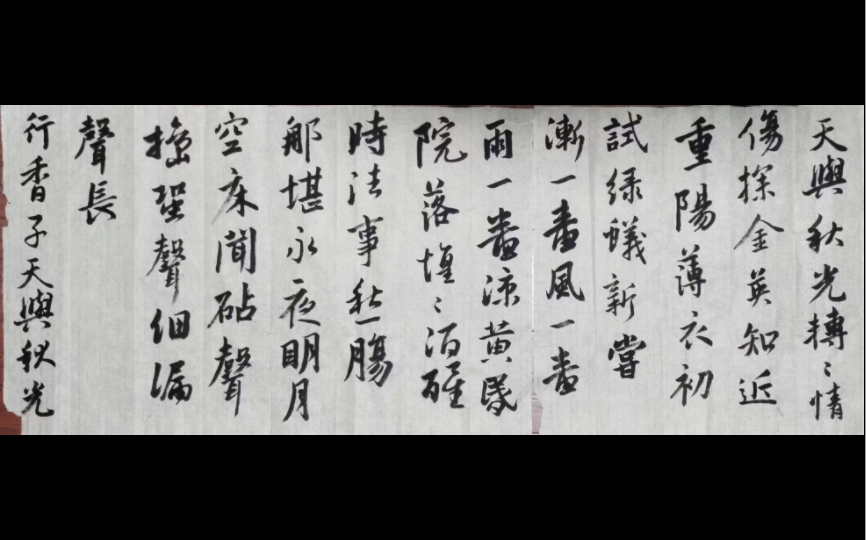 天與秋光轉〻情
傷探金英知近
重陽薄衣初
試綠蟻新嘗
漸一番風一番
雨一番涼黃昏
院落惶〻酒醒
時往事愁腸
那堪永夜明月
空床聞砧聲
搗蛩聲細漏
聲長
行香子天與秋光